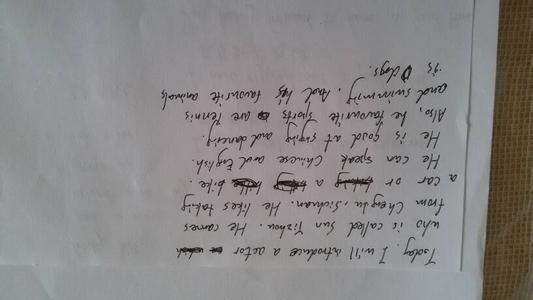 Today. I will introduce a actor
who is called Sun Yizhou. He comes
from Chengdu, Sichuan. He likes taking
a car or a bike.
He can speak Chinese and English.
He is good at singing and dancing.
Also, he favourite sports are Tennis
and swimming. And his favourite animals
is dogs.